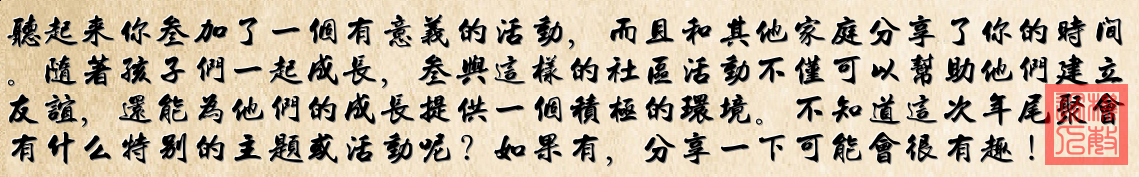 聽起来你叄加了一個有意義的活動，而且和其他家庭分享了你的時间
。隨著孩子們一起成長，叄與這樣的社區活動不僅可以幫助他們建立
友誼，還能為他們的成長提供一個積極的環境。不知道這次年尾聚會
有什么特别的主題或活動呢？如果有，分享一下可能會很有趣！